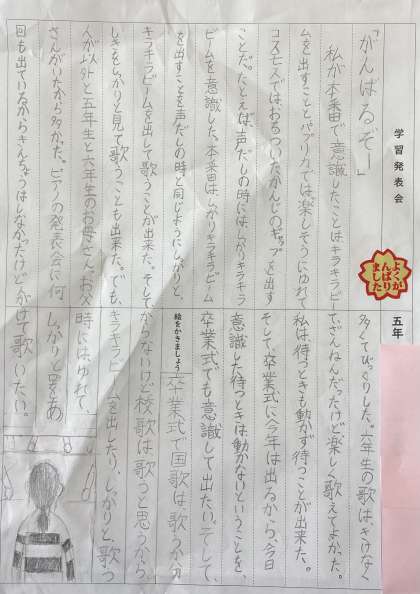 学習発表会
五年
「がんばるぞー」
私が本番で意識したことはキラキラビ
ームを出すこととパプリカでは楽しそうにゆれて
コスモスでは、おちついたかんじのギャップを出す
ことだ。たとえば、声だしの時にはしっかりキラキラ
ビームを意識した。本番はしっかりキラキラビーム
を出すことを声だしの時と同じようにしっかりと、
キラキラビームを出して歌うことが出来た。そして
しきをしっかりと見て歌うことも出来た。でも、
人が以外と五年生と六年生のお母さん、お父
さんがいたから多かった。ピアノの発表会に何
回も出ているからきんちょうはしなかったけど
よくが
んばり
ました
多くてびっくりした。六年生の歌は、きけなく
て、ざんねんだったけど楽しく歌えてよかった。
私は待つときも動かず待つことが出来た。
そして、卒業式に今年は出るから、今日
意識した待つときは動かないということを、
卒業式でも意識して出したい。そして、
絵をかきましょう
卒業式で国歌は、歌うか分
からないけど校歌は歌うと思うから、
キラキラビームを出したり、しっかりと、歌う
時には、ゆれて、
しっかりと口をあ
けて歌いたい。